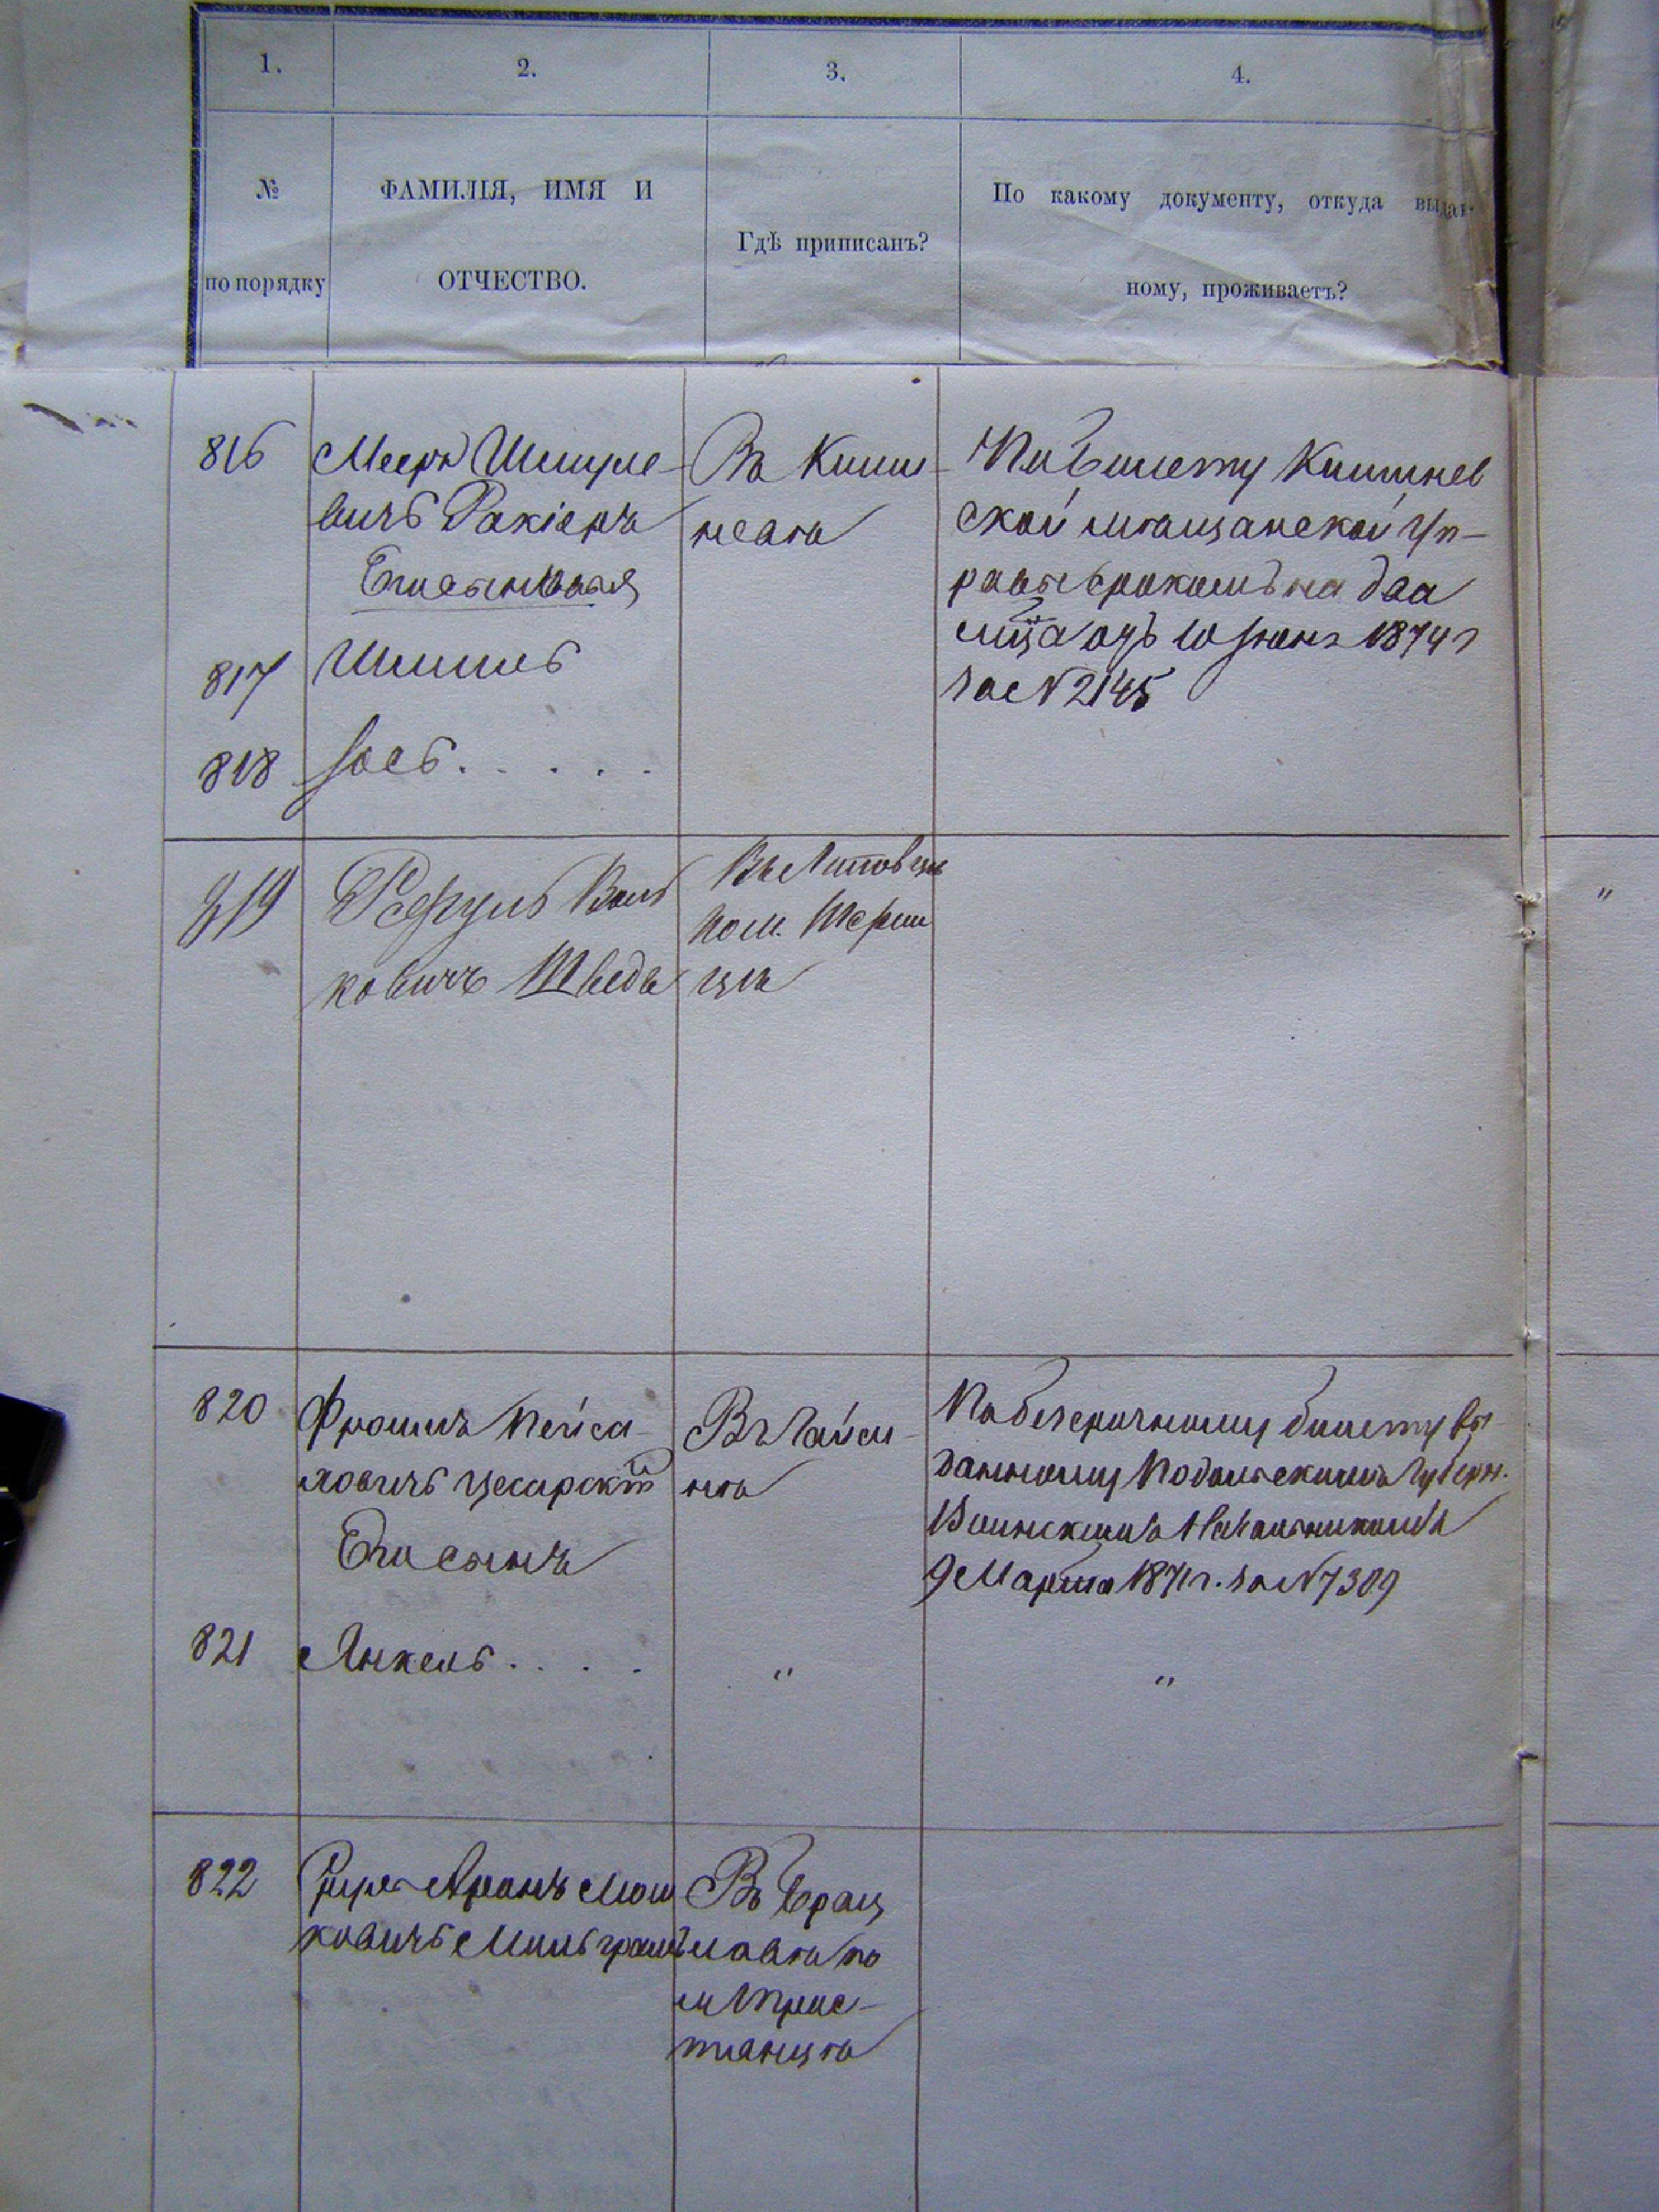 1.
2.
3.
4.
№
по порядку
ФАМИЛІЯ, ИМЯ И
ОТЧЕСТВО.
Гдѣ приписанъ?
По какому документу, откуда выдан-
ному, проживаетъ?
816
Мееръ Шмуле-
вичь
Его сыновья
Въ Киши-
невѣ
По билету Кишинев
ской мѣщанской Уп-
равы срокомъ на два
мца отъ 10 Іюня 1874 г
за № 2145
817
Шмиль
818
Іось . . . . .
819
Рефуль Воль
ковичъ Шведъ
Въ Литовцѣ
пом.
820
Фроимъ Пейса-
ховичь Цесарскій
Его сынъ
Въ Гайси-
нѣ
По безсрочному билету вы-
данному Подольскимъ Губерн.
Воинскимъ Начальникомъ
9 Марта 1871 г. за № 7309
821
Янкель . . . .
"
"
822
Аронъ Мош
ковичь Мильграмъ
Въ Брац
лавѣ по
м Трос-
тянцѣ
"